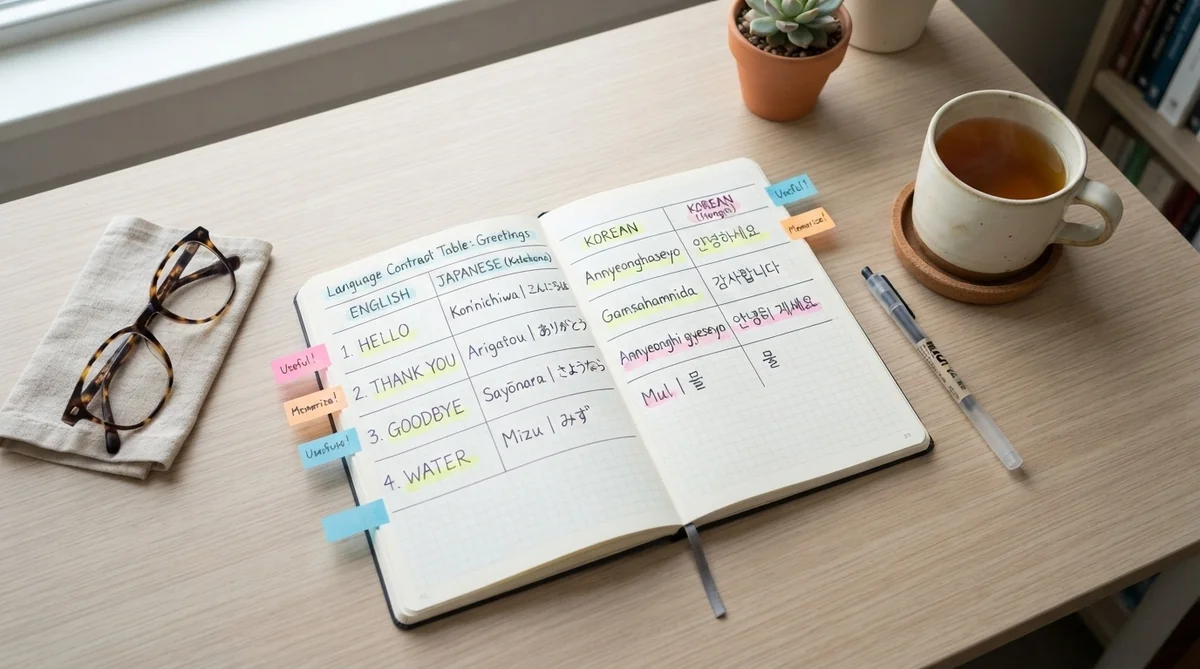 Language Contract Table: Greetings
ENGLISH
JAPANESE (Katakana)
1. HELLO
Konnichiwa | こんにちは
2. THANK YOU
Arigatou | ありがとう
3. GOODBYE
Sayōnara | さようなら
4. WATER
Mizu | みず
KOREAN
KOREAN
Annyeonghaseyo
안녕하세요
Gamsahamnida
감사합니다
Annyeonghi gyeseyo
안녕히 계세요
Mul | 물
물
Useful!
Memorize!
Useful!
Memorize!